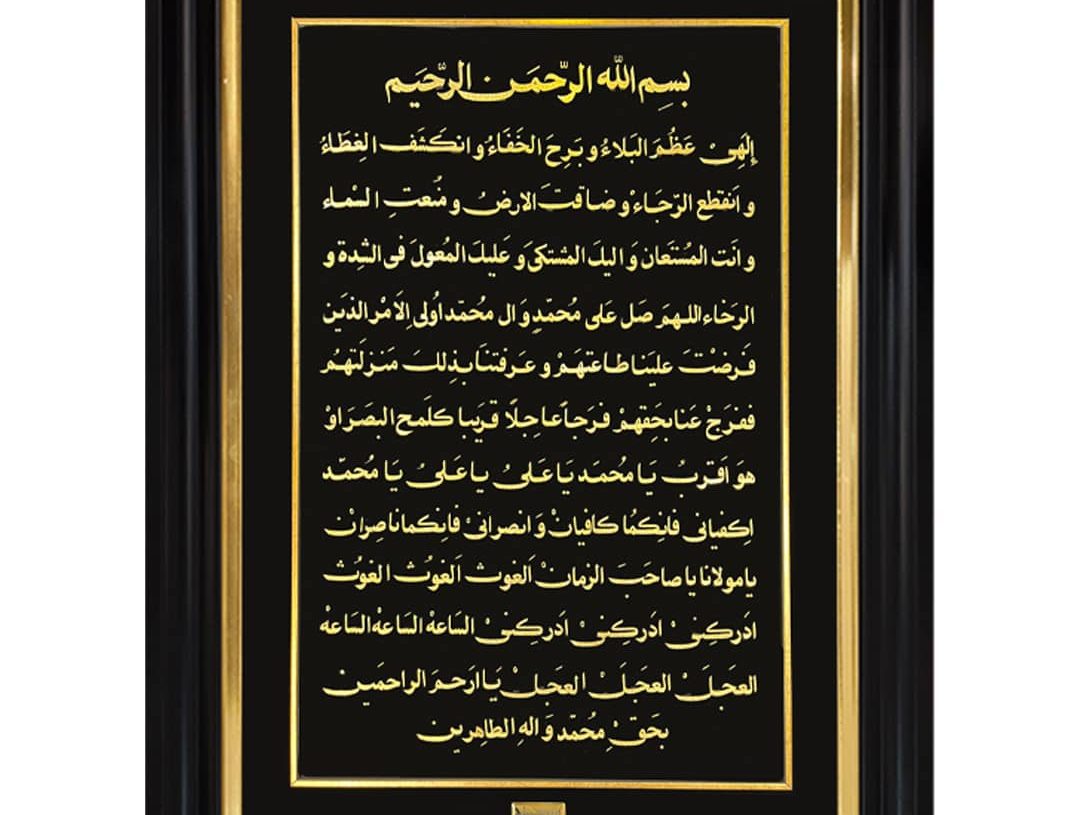 بسم الله الرحمن الرحیم
إلهی عظم البلاء و برح الخفاء و انکشف الغطاء
و انقطع الرجاء و ضاقت الارض و منعت السماء
و انت المستعان و الیك المشتکی و علیك المعول فی الشدة و
الرخاء اللهم صل علی محمد و ال محمد اولی الامر الذین
فرضت علینا طاعتهم و عرفتنا بذلك منزلتهم
ففرج عنا بحقهم فرجا عاجلا قریبا کلمح البصر او
هو اقرب یا محمد یا علی یا علی یا محمد
اکفیانی فانکما کافیان و انصرانی فانکما ناصران
یا مولانا یا صاحب الزمان الغوث الغوث الغوث
ادرکنی ادرکنی ادرکنی الساعة الساعة الساعة
العجل العجل العجل یا ارحم الراحمین
بحق محمد و اله الطاهرین